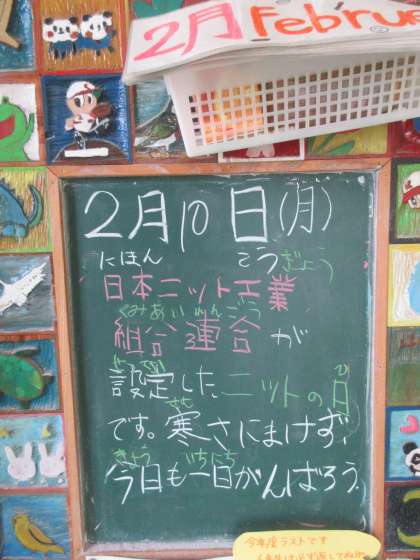 2月 Febru
2月10日(月)
にほん こうぎょう
日本ニット工業
くみあい れんごう
組合連合が
せってい ひ
設定したニットの日
さむ
です。寒さにまけず、
きょう いちにち
今日も一日がんばろう。
今年度ラストです